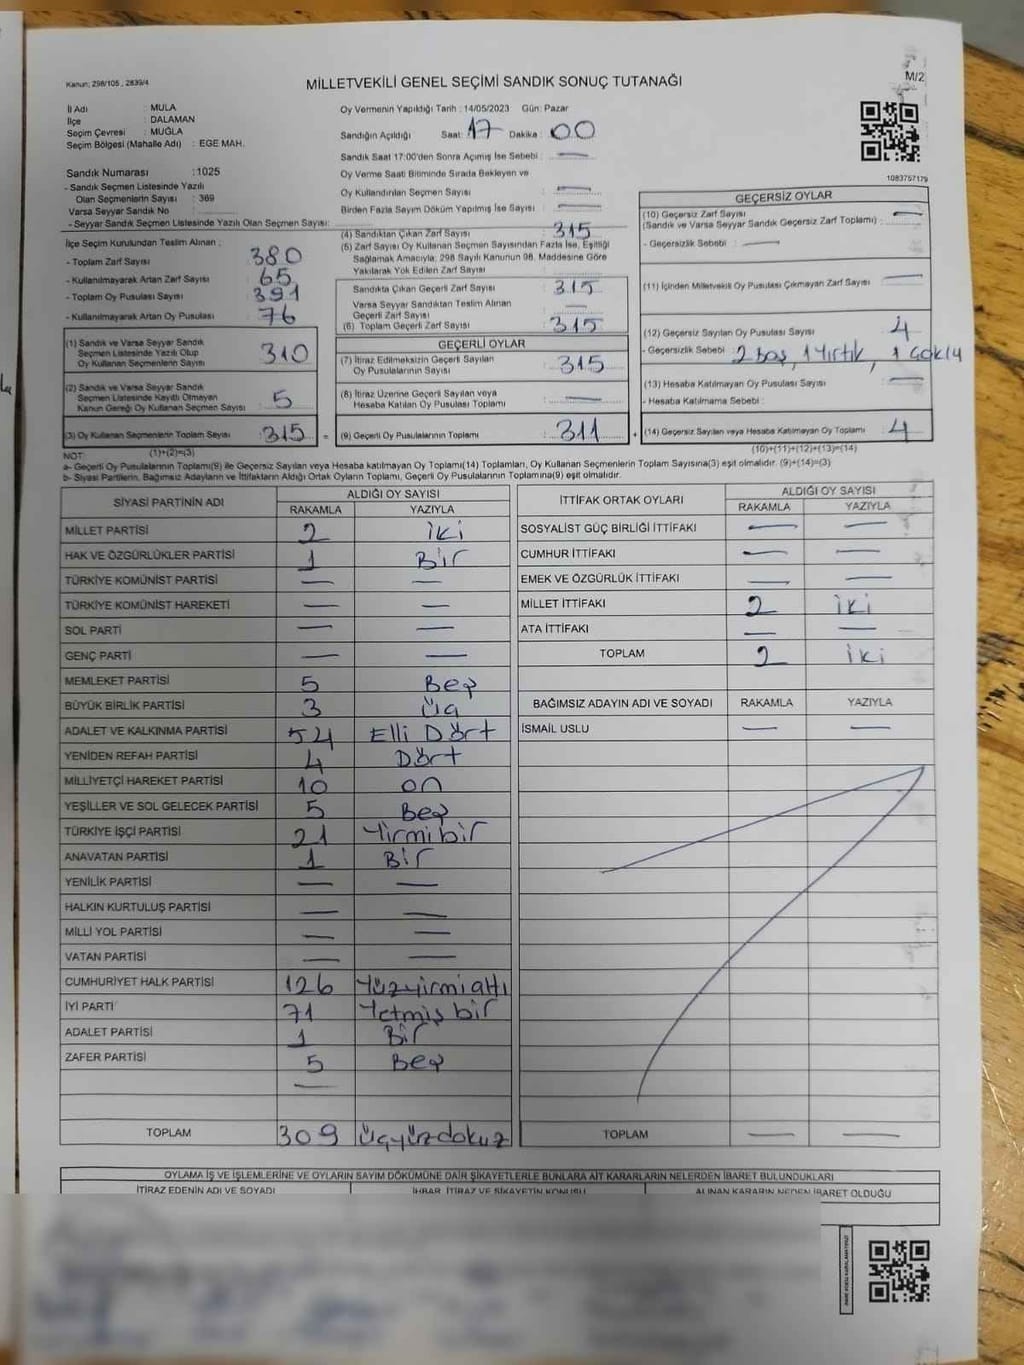 Kanun: 298/105 , 2839/4
MİLLETVEKİLİ GENEL SEÇİMİ SANDIK SONUÇ TUTANAĞI
M/2
İl Adı : MULA
İlçe : DALAMAN
Seçim Çevresi : MUĞLA
Seçim Bölgesi (Mahalle Adı) : EGE MAH.
Sandık Numarası :1025
- Sandık Seçmen Listesinde Yazılı
Olan Seçmenlerin Sayısı : 369
Varsa Seyyar Sandık No :
- Seyyar Sandık Seçmen Listesinde Yazılı Olan Seçmen Sayısı:
Oy Vermenin Yapıldığı Tarih : 14/05/2023 Gün: Pazar
Sandığın Açıldığı Saat: 17 Dakika : 00
Sandık Saat 17:00'den Sonra Açımış İse Sebebi : —
Oy Verme Saat Bitiminde Sırada Bekleyen ve
Oy Kullandırılan Seçmen Sayısı : —
Birden Fazla Sayım Döküm Yapılmış İse Sayısı : —
1083757179
İlçe Seçim Kurulundan Teslim Alınan ;
- Toplam Zarf Sayısı : 380
- Kullanılmayarak Artan Zarf Sayısı : 65
- Toplam Oy Pusulası Sayısı : 391
- Kullanılmayarak Artan Oy Pusulası : 76
(1) Sandık ve Varsa Seyyar Sandık
Seçmen Listesinde Yazılı Olup
Oy Kullanan Seçmenlerin Sayısı : 310
(2) Sandık ve Varsa Seyyar Sandık
Seçmen Listesinde Kayıtlı Olmayan
Kanun Gereği Oy Kullanan Seçmen Sayısı : 5
(3) Oy Kullanan Seçmenlerin Toplam Sayısı : 315
(4) Sandıktan Çıkan Zarf Sayısı : 315
(5) Zarf Sayısı Oy Kullanan Seçmen Sayısından Fazla İse, Eşitliği
Sağlamak Amacıyla, 298 Sayılı Kanunun 98. Maddesine Göre
Yakılarak Yok Edilen Zarf Sayısı :
Sandıkta Çıkan Geçerli Zarf Sayısı : 315
Varsa Seyyar Sandıktan Teslim Alınan
Geçerli Zarf Sayısı : —
(6) Toplam Geçerli Zarf Sayısı : 315
GEÇERLİ OYLAR
(7) İtiraz Edilmeksizin Geçerli Sayılan
Oy Pusulalarının Sayısı : 315
(8) İtiraz Üzerine Geçerli Sayılan veya
Hesaba Katılan Oy Pusulası Toplamı : —
= (9) Geçerli Oy Pusulalarının Toplamı : 311
GEÇERSİZ OYLAR
(10) Geçersiz Zarf Sayısı
(Sandık ve Varsa Seyyar Sandık Geçersiz Zarf Toplamı) : —
- Geçersizlik Sebebi : —
(11) İçinden Milletvekili Oy Pusulası Çıkmayan Zarf Sayısı : —
(12) Geçersiz Sayılan Oy Pusulası Sayısı : 4
- Geçersizlik Sebebi : 2 boş, 1 Yırtık, 1 çoklu
(13) Hesaba Katılmayan Oy Pusulası Sayısı : —
- Hesaba Katılmama Sebebi :
+ (14) Geçersiz Sayılan veya Hesaba Katılmayan Oy Toplamı : 4
NOT: (1)+(2)=(3)
(10)+(11)+(12)+(13)=(14)
a- Geçerli Oy Pusulaları Toplamı(9) ile Geçersiz Sayılan veya Hesaba katılmayan Oy Toplamı(14) Toplamları, Oy Kullanan Seçmenlerin Toplam Sayısına(3) eşit olmalıdır. (9)+(14)=(3)
b- Siyasi Partilerin, Bağımsız Adayların ve İttifakların Aldığı Ortak Oyların Toplamı, Geçerli Oy Pusulalarının Toplamına(9) eşit olmalıdır.
SİYASİ PARTİNİN ADI ALDIĞI OY SAYISI
RAKAMLA YAZIYLA
MİLLET PARTİSİ 2 iki
HAK VE ÖZGÜRLÜKLER PARTİSİ 1 Bir
TÜRKİYE KOMÜNİST PARTİSİ — —
TÜRKİYE KOMÜNİST HAREKETİ — —
SOL PARTİ — —
GENÇ PARTİ — —
MEMLEKET PARTİSİ 5 Beş
BÜYÜK BİRLİK PARTİSİ 3 Üç
ADALET VE KALKINMA PARTİSİ 54 Elli Dört
YENİDEN REFAH PARTİSİ 4 Dört
MİLLİYETÇİ HAREKET PARTİSİ 10 on
YEŞİLLER VE SOL GELECEK PARTİSİ 5 Beş
TÜRKİYE İŞÇİ PARTİSİ 21 Yirmi bir
ANAVATAN PARTİSİ 1 Bir
YENİLİK PARTİSİ — —
HALKIN KURTULUŞ PARTİSİ — —
MİLLİ YOL PARTİSİ — —
VATAN PARTİSİ — —
CUMHURİYET HALK PARTİSİ 126 Yüzyirmi altı
İYİ PARTİ 71 Yetmiş bir
ADALET PARTİSİ 1 Bir
ZAFER PARTİSİ 5 Beş
—
TOPLAM 309 Üçyüzdokuz
İTTİFAK ORTAK OYLARI ALDIĞI OY SAYISI
RAKAMLA YAZIYLA
SOSYALİST GÜÇ BİRLİĞİ İTTİFAKI — —
CUMHUR İTTİFAKI — —
EMEK VE ÖZGÜRLÜK İTTİFAKI — —
MİLLET İTTİFAKI 2 iki
ATA İTTİFAKI — —
TOPLAM 2 iki
BAĞIMSIZ ADAYIN ADI VE SOYADI RAKAMLA YAZIYLA
İSMAİL USLU — —
TOPLAM — —
OYLAMA İŞ VE İŞLEMLERİNE VE OYLARIN SAYIM DÖKÜMÜNE DAİR ŞİKAYETLERLE BUNLARA AİT KARARLARIN NELERDEN İBARET BULUNDUKLARI
İTİRAZ EDENİN ADI VE SOYADI İHBAR, İTİRAZ VE ŞİKAYETİN KONUSU ALINAN KARARIN NEDEN İBARET OLDUĞU